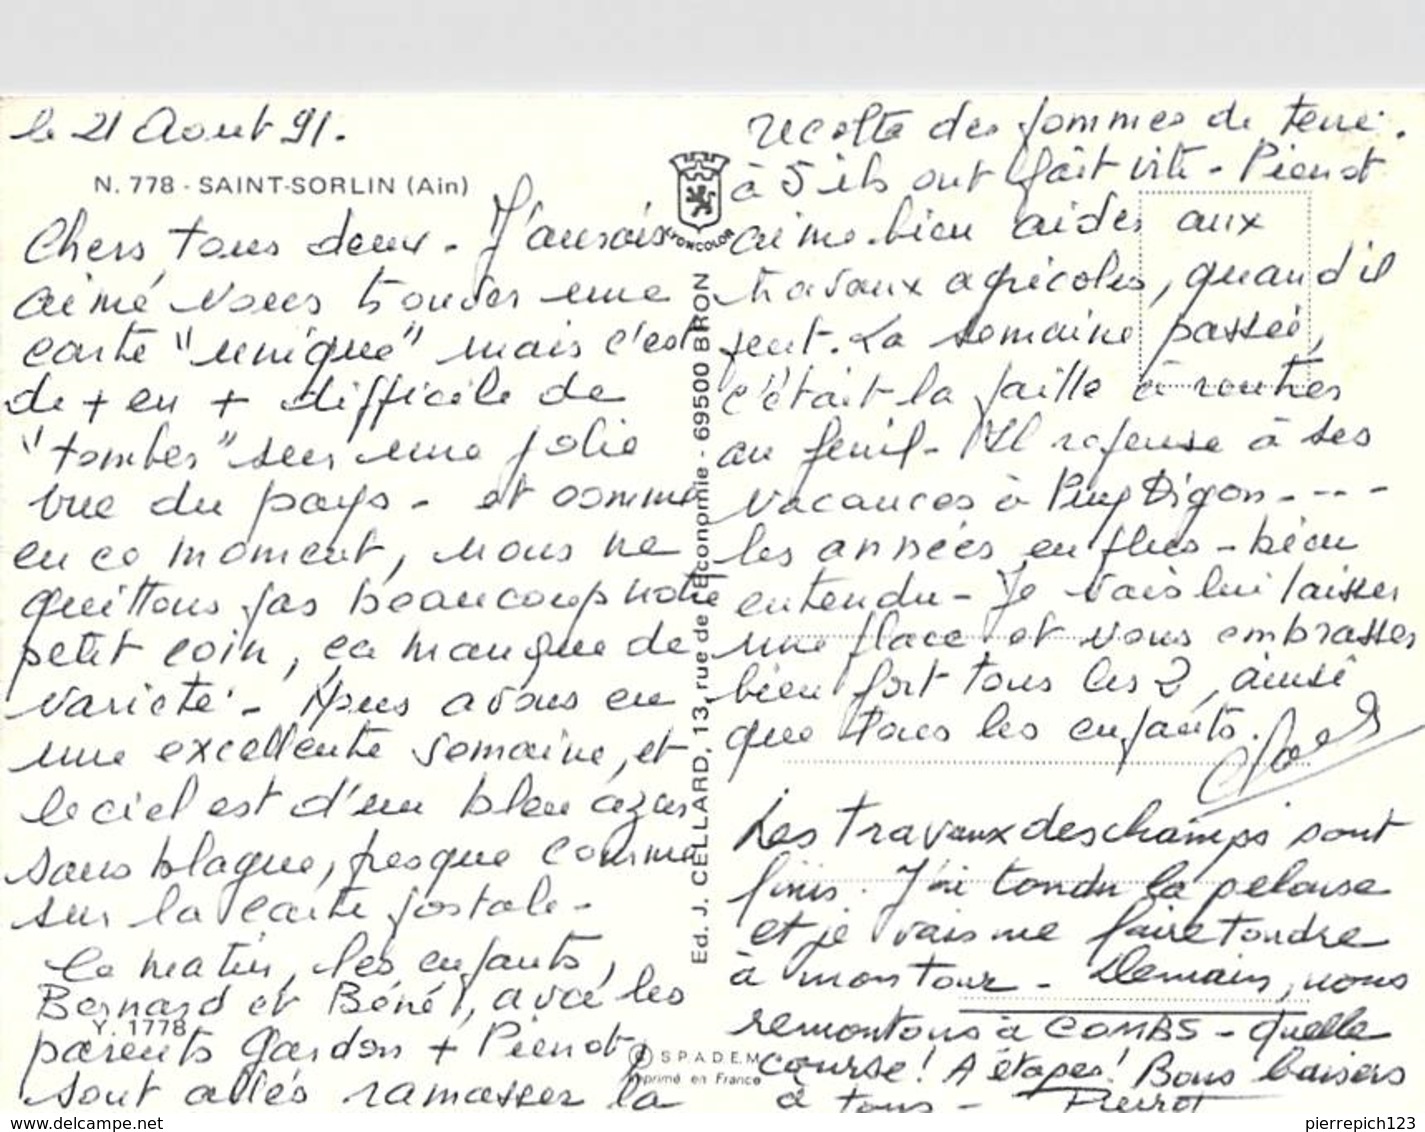 le 21 Aout 91.
N. 778 - SAINT-SORLIN (Ain)
Chers tous deux - J'aurais
aimé vous trouver une
carte "unique" mais c'est
de + en + difficile de
"tomber" sur une jolie
vue du pays - et comme
en ce moment, nous ne
quittons pas beaucoup notre
petit coin, ça manque de
varieté. Nous avons eu
une excellente semaine, et
le ciel est d'un bleu azur
sans blague, presque comme
sur la carte postale -
Ce matin, les enfants,
Bernard et Béné, avec les
Y. 1778
parents Gardon + Pierrot
sont allés ramasser la
LYONCOLOR
Ed. J. CELLARD, 13, rue de l'Économie - 69500 BRON
© S.P.A.D.E.M.
Imprimé en France
recolte des pommes de terre.
à 5 ils ont fait vite - Pierrot
aime bien aider aux
travaux agricoles, quand il
peut. La semaine passée,
c'était la paille à rentrer
au fenil - Il repense à ses
vacances à Puy Digon - - - -
les années en plus - bien
entendu - Je vais lui laisser
une place et vous embrasser
bien fort tous les 2, ainsi
que tous les enfants.
Les travaux des champs sont
finis. J'ai tondu la pelouse
et je vais me faire tondre
à mon tour - Demain, nous
remontons à COMBS - Quelle
course! A étapes! Bons baisers
à tous - Pierrot
pierrepich123